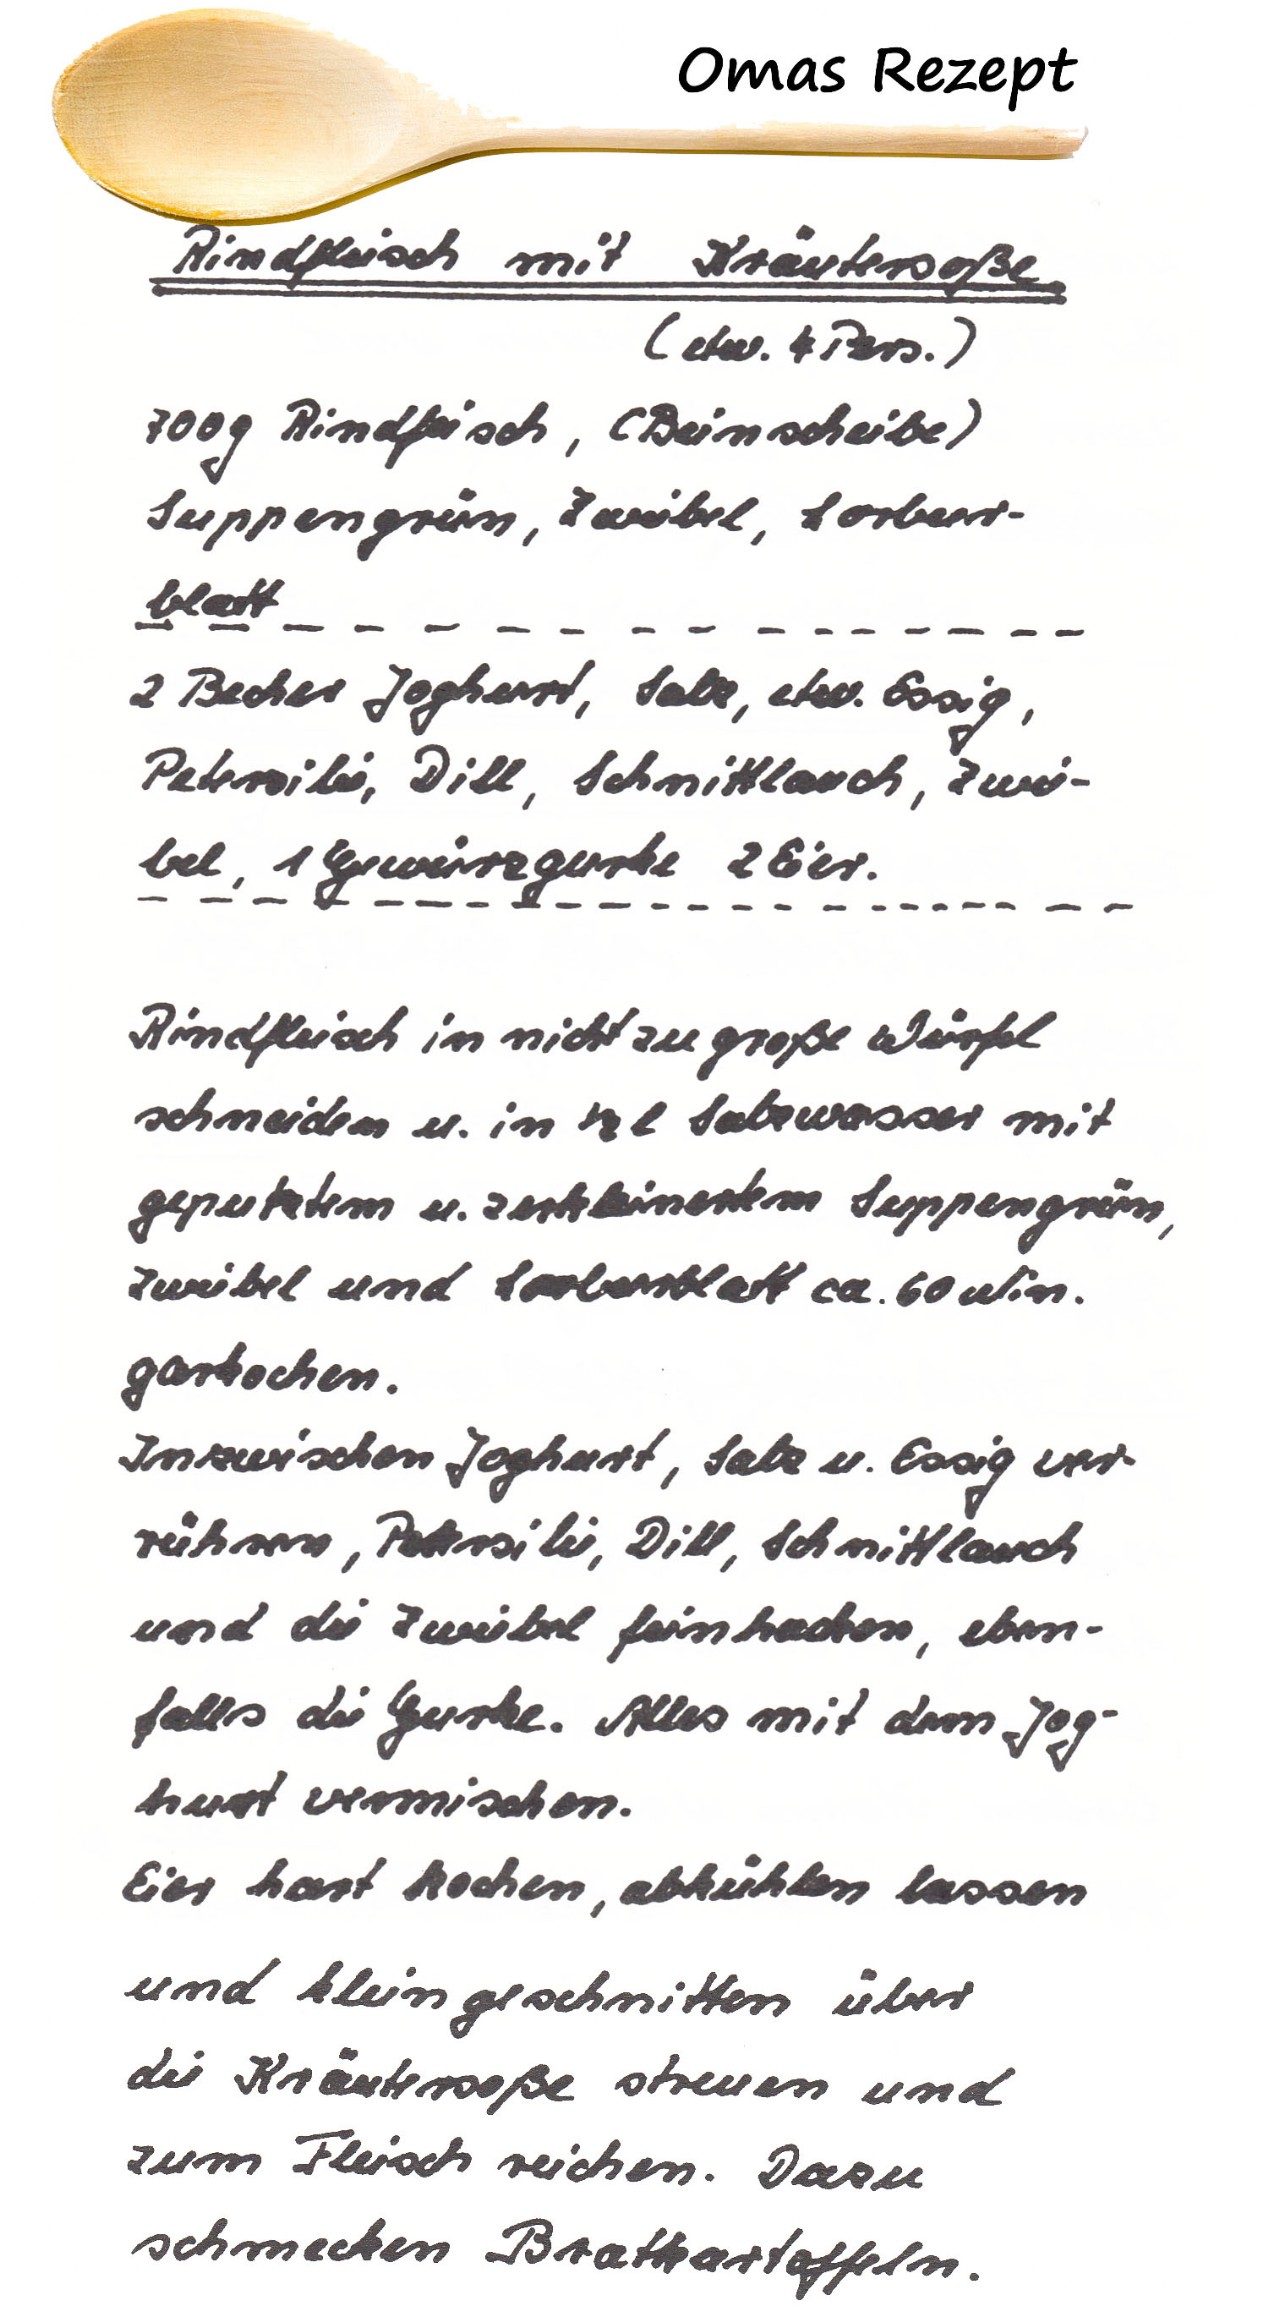 Omas Rezept
Rindfleisch mit Kräutersoße
(etw. 4 Pers.)
700g Rindfleisch, (Beinscheibe)
Suppengrün, Zwiebel, Lorbeer-
blatt
2 Becher Joghurt, Salz, etw. Essig,
Petersilie, Dill, Schnittlauch, Zwie-
bel, 1 Gewürzgurke 2 Eier.
Rindfleisch in nicht zu große Würfel
schneiden u. in ½ l Salzwasser mit
geputztem u. zerkleinertem Suppengrün,
Zwiebel und Lorbeerblatt ca. 60 Min.
garkochen.
Inzwischen Joghurt, Salz u. Essig ver-
rühren, Petersilie, Dill, Schnittlauch
und die Zwiebel feinhacken, eben-
falls die Gurke. Alles mit dem Jog-
hurt vermischen.
Eier hart kochen, abkühlen lassen
und klein geschnitten über
die Kräutersoße streuen und
zum Fleisch reichen. Dazu
schmecken Bratkartoffeln.